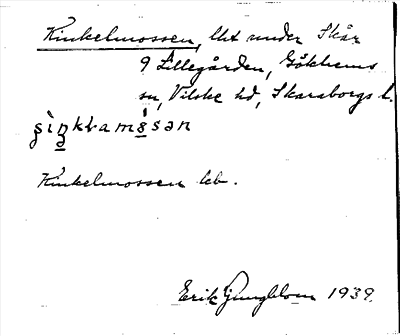 Kinkelmossen, lht under Skår
9 Lillegården, Gökhems
sn, Vilske hd, Skaraborgs l.
Kinkelmossen lcb.
Erik Ljungblom 1939.